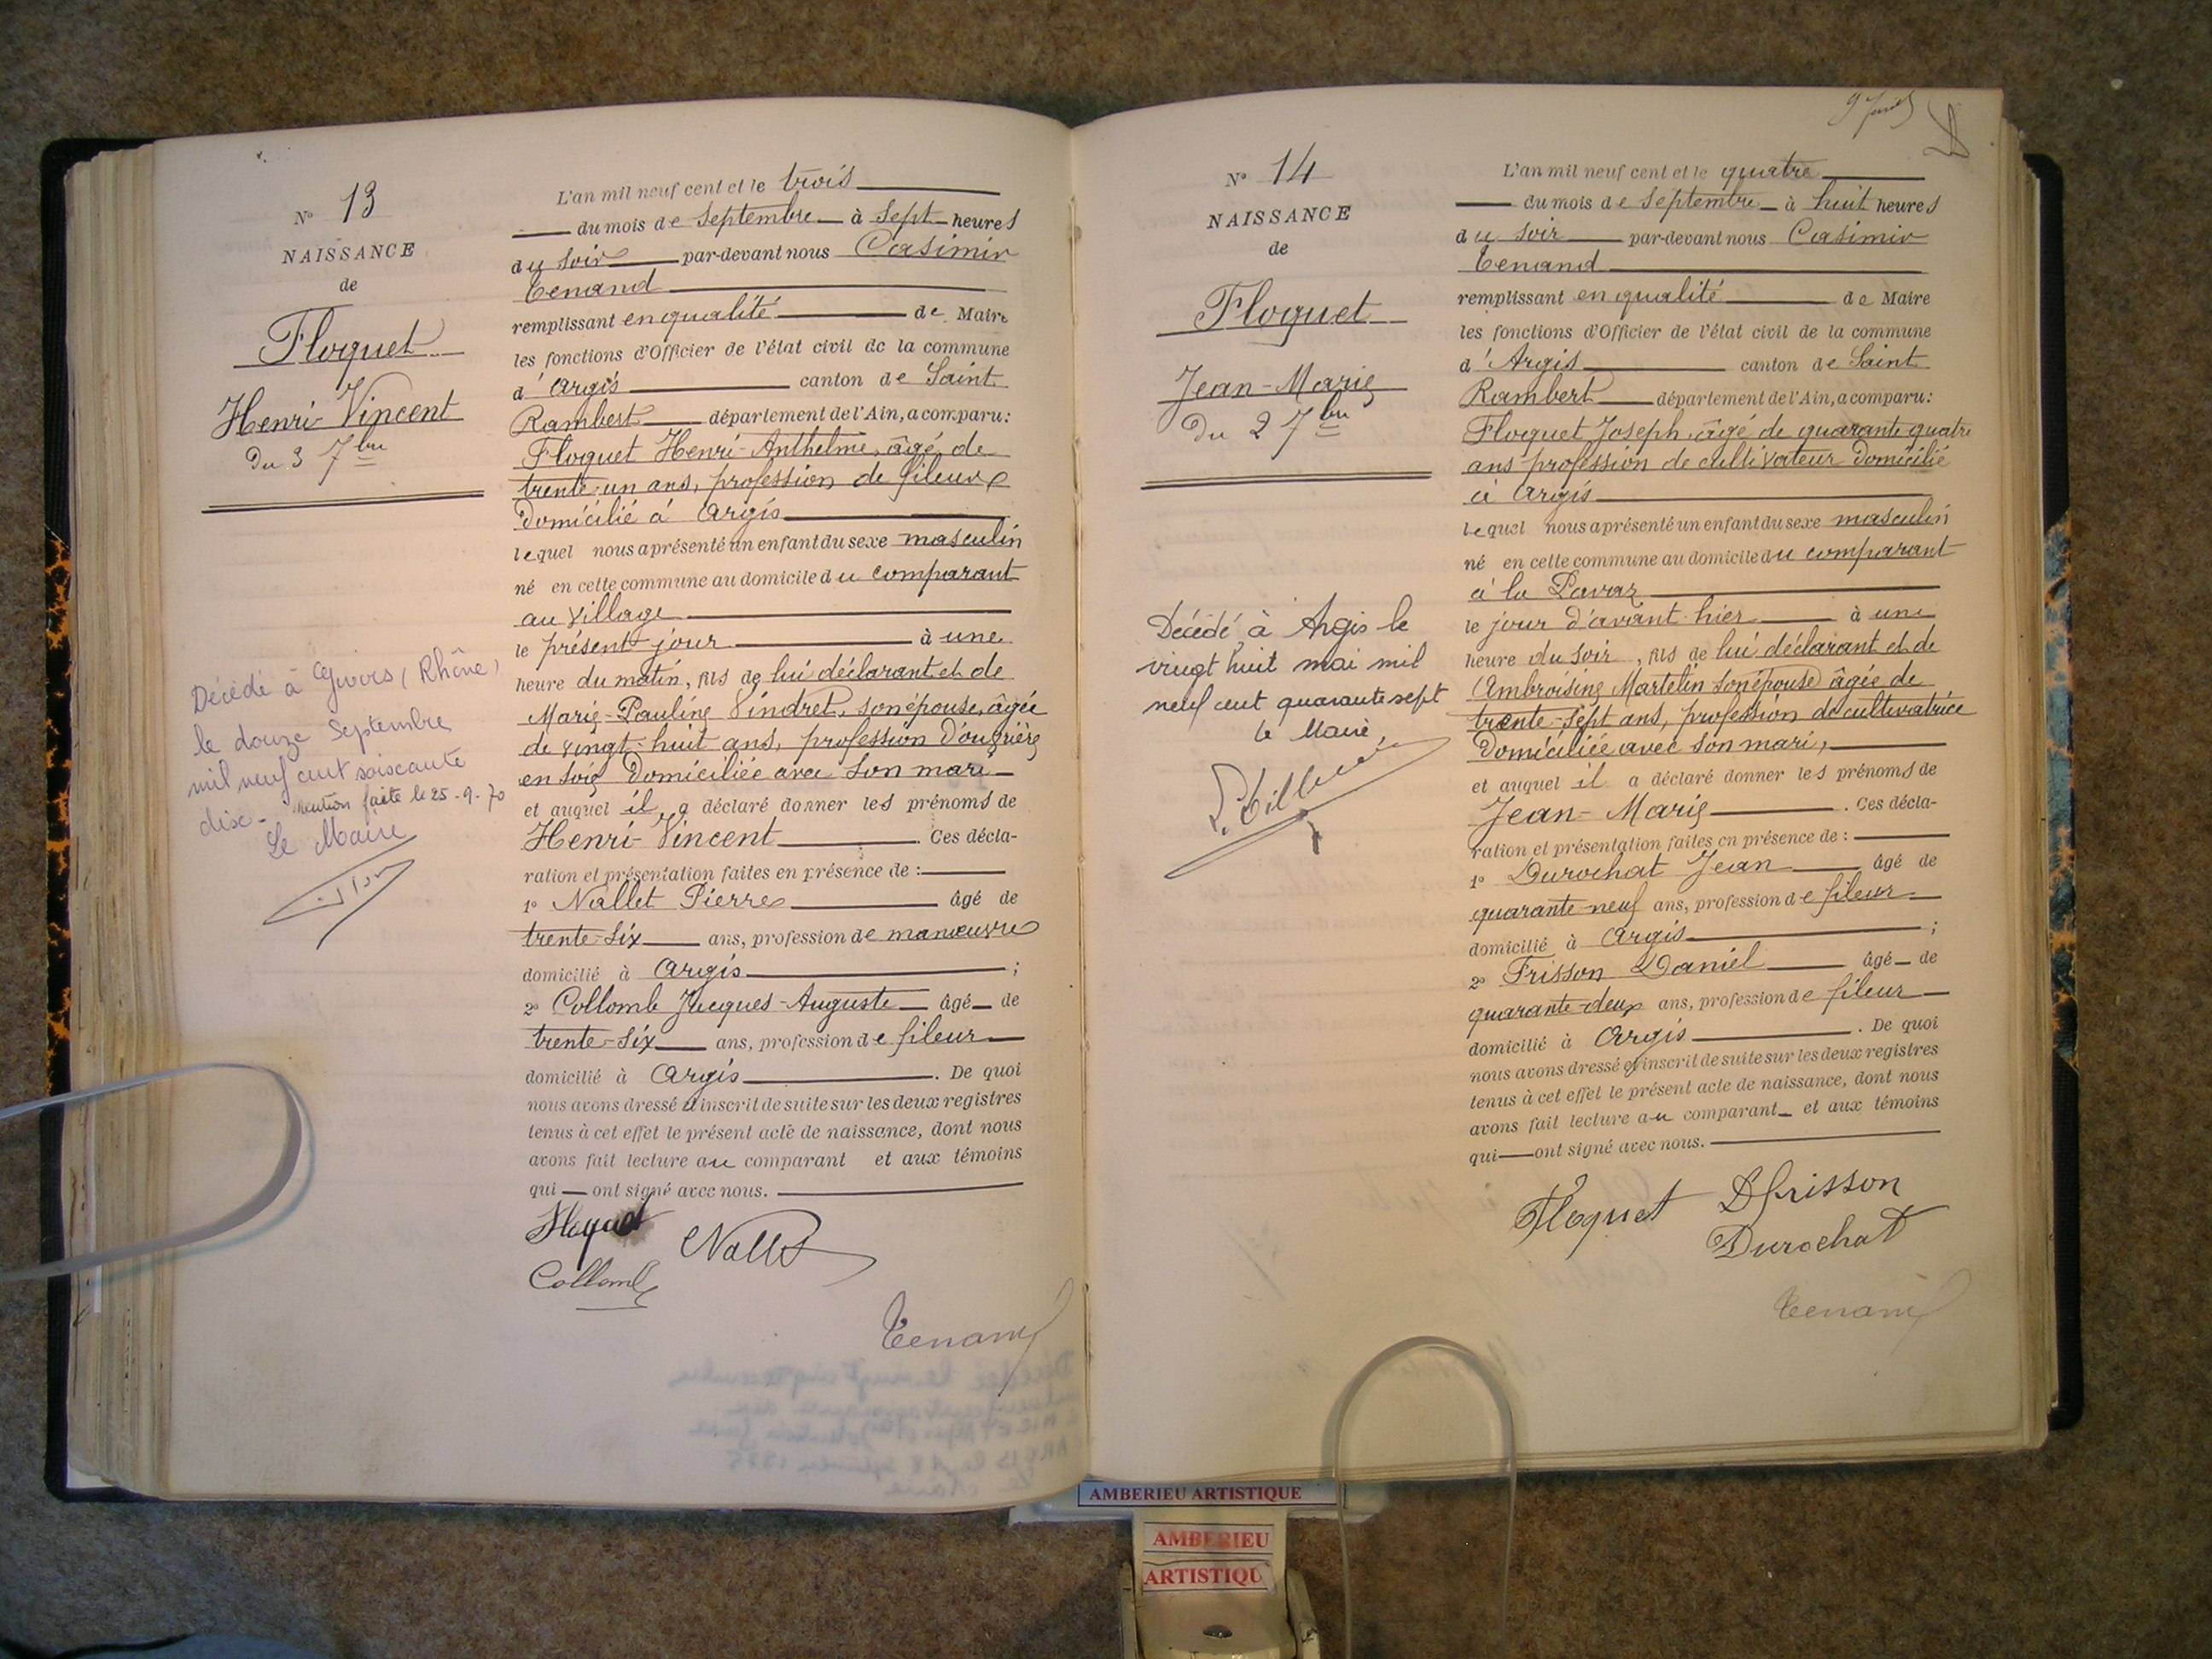 N° 13
NAISSANCE
de
Floquet
Henri-Vincent
Du 3 7bre
Décédé à Givors (Rhône)
le douze Septembre
mil neuf cent soixante
dix - Mention faite le 25-9-70
Le Maire
L'an mil neuf cent et le trois
du mois de Septembre à sept heures
du soir par-devant nous Casimir
Tenand
remplissant en qualité de Maire
les fonctions d'Officier de l'état civil de la commune
d'Argis canton de Saint
Rambert département de l'Ain, a comparu:
Floquet Henri-Anthelme, âgé de
trente-un ans, profession de fileur
Domicilié à Argis
lequel nous a présenté un enfant du sexe masculin
né en cette commune au domicile du comparant
au village
le présent jour à une
heure du matin, fils de lui déclarant et de
Marie-Pauline Vindret, son épouse, âgée
de vingt-huit ans, profession d'ouvrière
en soie Domiciliée avec son mari
et auquel il a déclaré donner les prénoms de
Henri-Vincent. Ces décla-
ration et présentation faites en présence de :
1° Nallet Pierre âgé de
trente-six ans, profession de manœuvre
domicilié à Argis ;
2° Collomb Jacques-Auguste âgé de
trente-six ans, profession de fileur
domicilié à Argis. De quoi
nous avons dressé et inscrit de suite sur les deux registres
tenus à cet effet le présent acte de naissance, dont nous
avons fait lecture au comparant et aux témoins
qui ont signé avec nous.
Floquet Nallet
Collomb
Tenand
9 Juin
N° 14
NAISSANCE
de
Floquet
Jean-Marie
Du 2 7bre
Décédé à Argis le
vingt huit mai mil
neuf cent quarante sept
le Maire,
L'an mil neuf cent et le quatre
du mois de Septembre à huit heures
du soir par-devant nous Casimir
Tenand
remplissant en qualité de Maire
les fonctions d'Officier de l'état civil de la commune
d'Argis canton de Saint
Rambert département de l'Ain, a comparu:
Floquet Joseph, âgé de quarante quatre
ans profession de cultivateur Domicilié
à Argis
lequel nous a présenté un enfant du sexe masculin
né en cette commune au domicile du comparant
à la Pavaz
le jour d'avant-hier à une
heure du soir, fils de lui déclarant et de
(Ambroisine Martelin son épouse) âgée de
trente-sept ans, profession de cultivatrice
Domiciliée avec son mari,
et auquel il a déclaré donner les prénoms de
Jean-Marie. Ces décla-
ration et présentation faites en présence de :
1° Durochat Jean âgé de
quarante-neuf ans, profession de fileur
domicilié à Argis ;
2° Frisson Daniel âgé de
quarante-deux ans, profession de fileur
domicilié à Argis. De quoi
nous avons dressé et inscrit de suite sur les deux registres
tenus à cet effet le présent acte de naissance, dont nous
avons fait lecture au comparant et aux témoins
qui ont signé avec nous.
Floquet DFrisson
Durochat
Tenand
AMBERIEU ARTISTIQUE
AMBERIEU
ARTISTIQU